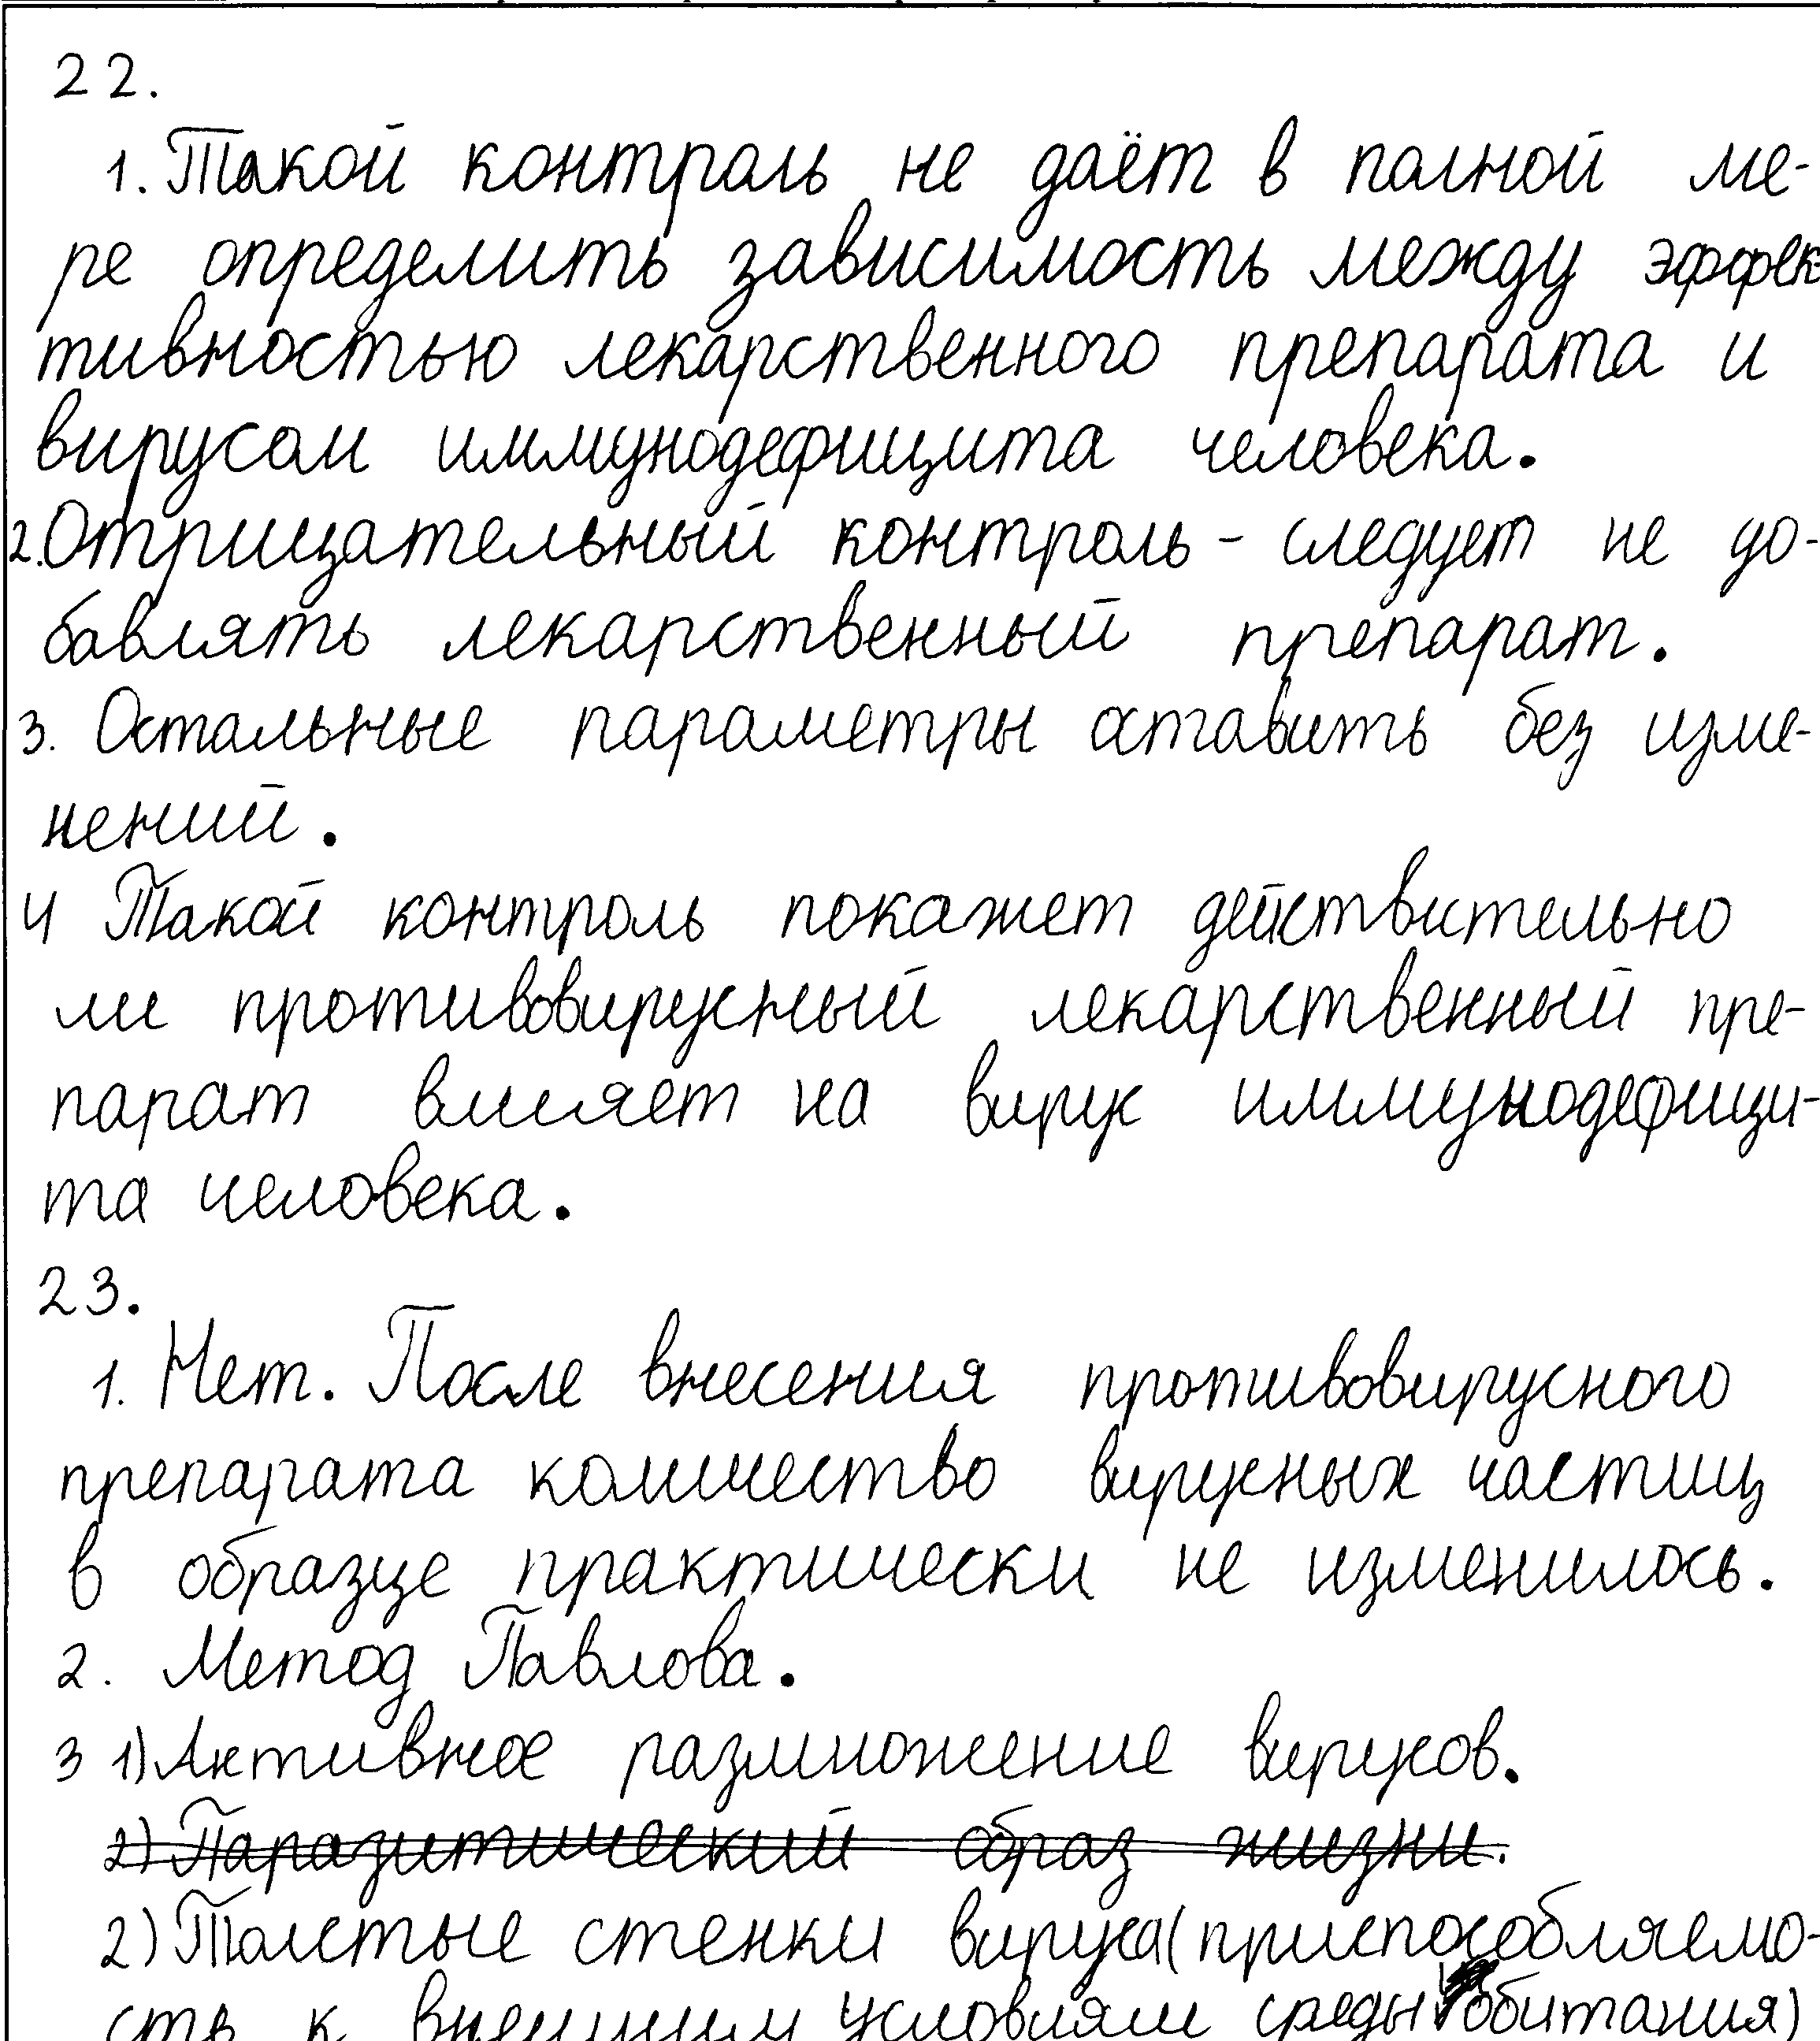 22.
1. Такой контроль не даёт в полной ме-
ре определить зависимость между эффек-
тивностью лекарственного препарата и
вирусом иммунодефицита человека.
2. Отрицательный контроль - следует не до-
бавлять лекарственный препарат.
3. Остальные параметры оставить без изме-
нений.
4 Такой контроль покажет действительно
ли противовирусный лекарственный пре-
парат влияет на вирус иммунодефици-
та человека.
23.
1. Нет. После внесения противовирусного
препарата количество вирусных частиц
в образце практически не изменилось.
2. Метод Павлова.
3 1) Активное размножение вирусов.
2) Паразитический образ жизни.
2) Толстые стенки вируса (приспособляемо-
сть к внешним условиям среды обитания)